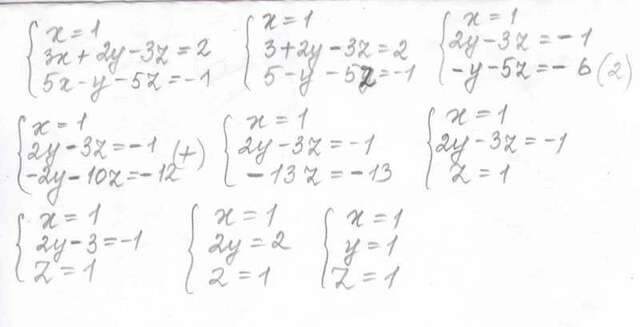 x = 1
3x + 2y - 3z = 2
5x - y - 5z = -1
x = 1
3 + 2y - 3z = 2
5 - y - 5z = -1
x = 1
2y - 3z = -1
-y - 5z = -6 (2)
x = 1
2y - 3z = -1 (+)
-2y - 10z = -12
x = 1
2y - 3z = -1
-13z = -13
x = 1
2y - 3z = -1
z = 1
x = 1
2y - 3 = -1
z = 1
x = 1
2y = 2
z = 1
x = 1
y = 1
z = 1